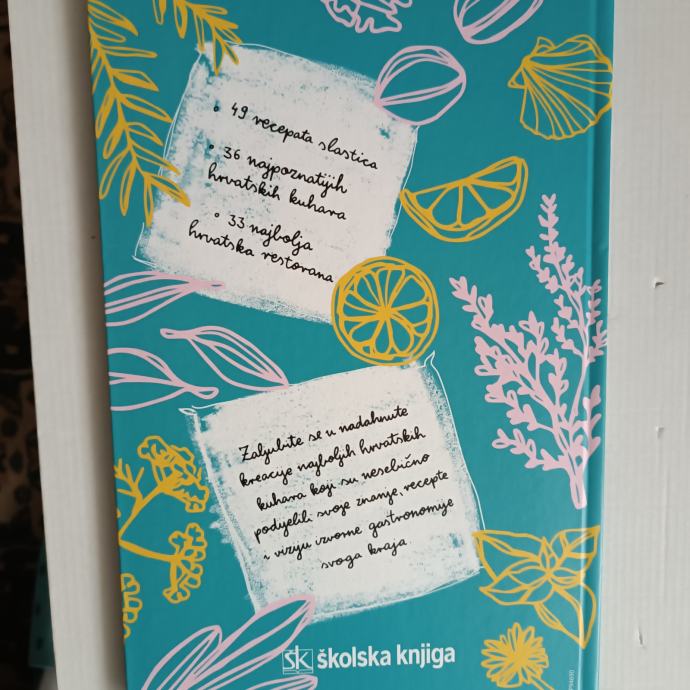 • 49 recepata slastica
• 36 najpoznatijih
hrvatskih kuhara
• 33 najbolja
hrvatska restorana
Zaljubite se u nadahnute
kreacije najboljih hrvatskih
kuhara koji su nesebično
podijelili svoje znanje, recepte
i viziju izvorne gastronomije
svoga kraja.
šk školska knjiga